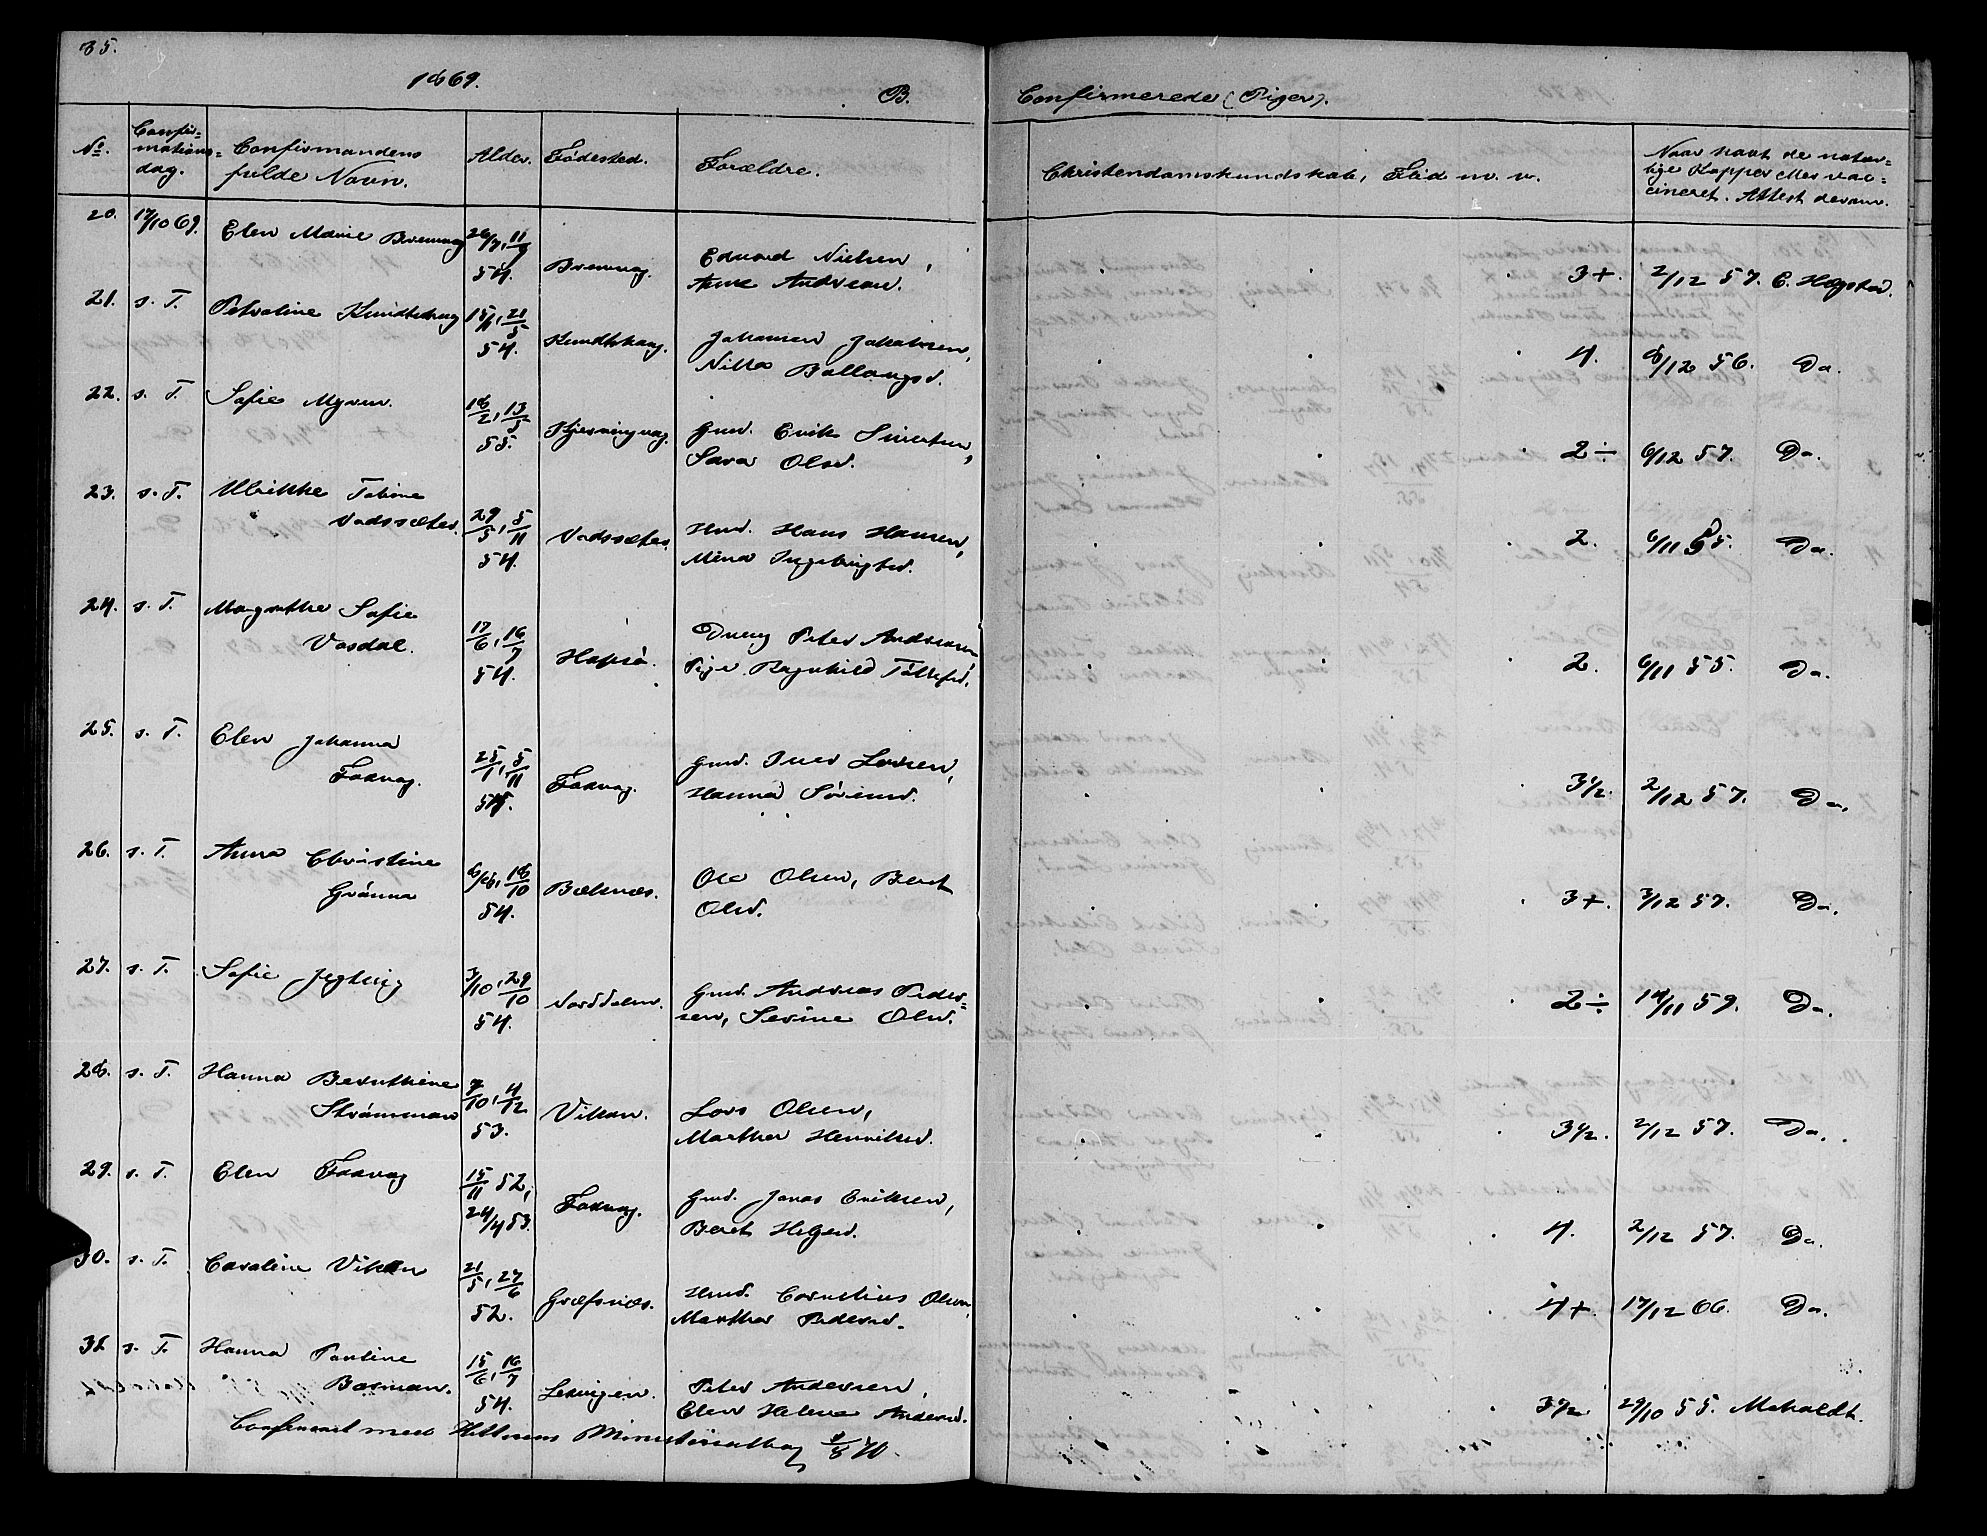 35.
1869.
B.
Confirmerede (Piger).
No. Confir=mations=dag. Confirmandens fulde Navn. Alder. Fødested. Forældre. Christendomskundskab, Flid m. v. Naar havt de natur=lige Kopper eller vac=cineret. Attest derom.
20. 17/10 69. Elen Marie Bremvag 26/7, 11/9 54. Bremvag. Edvard Nielsen, Anne Andreasd. 3+. 2/12 57. C. Hagsted.
21. s. T. Petroline Kundtskaug 15/4, 21/5 54. Kundtskaug. Johannes Johansen, Nilla Ballangsd. 4. 8/12 56. Do.
22. s. T. Sofie Myren. 18/2, 13/5 55. Kjerringvag. Gmd. Erik Sivertsen, Sara Olsd. 2÷ 6/12 57. Do.
23. s. T. Ulrikke Tobine Vadssæter. 29/5, 5/11 54. Vadssæter. Hmd. Hans Hansen, Mina Ingebrigtsd. 2. 6/11 55. Do.
24. s. T. Magrethe Sofie Vasdal. 17/6, 16/7 54. Hopsø. Dreng Peter Andreasen Pige Ragnhild Tøllefsd. 2. 6/11 55. Do.
25. s. T. Elen Johanna Faxvag. 25/1, 5/11 54. Faxvag. Gmd. Iver Larsen, Hanna Sørensd. 3½. 2/12 57. Do.
26. s. T. Anna Christine Grønna 6/8, 18/10 54. Bæknæs. Ole Olsen, Beret Olsd. 3+. 3/12 57. Do.
27. s. T. Sofie Jegtvig 3/10, 29/10 54. Norddalen. Gmd. Andreas Peder=sen, Serine Olsd. 2÷ 14/11 59. Do.
28. s. T. Hanna Bernthine Strømman 7/10, 4/12 53. Vikan. Lars Olsen, Marthe Henriksd. 3½. 2/12 57. Do.
29. s. T. Elen Faxvag 15/11 52, 24/4 53. Faxvag. Gmd. Jonas Eriksen, Beret Helgesd. 4. 2/12 57. Do.
30. s. T. Caroline Vikan 21/5, 27/6 52. Græfsnæs. Hmd. Cornelius Olsen, Marthe Pedersd. 4+. 17/12 66. Do.
31. s. T. Hanna Pauline Bosman. 15/6, 16/7 54. Leervigen. Peter Andersen, Elen Helene Andersd. 3½ 29/10 55. Maholdt.
Confereret med Hitterens Ministerialbog 4/8 70.